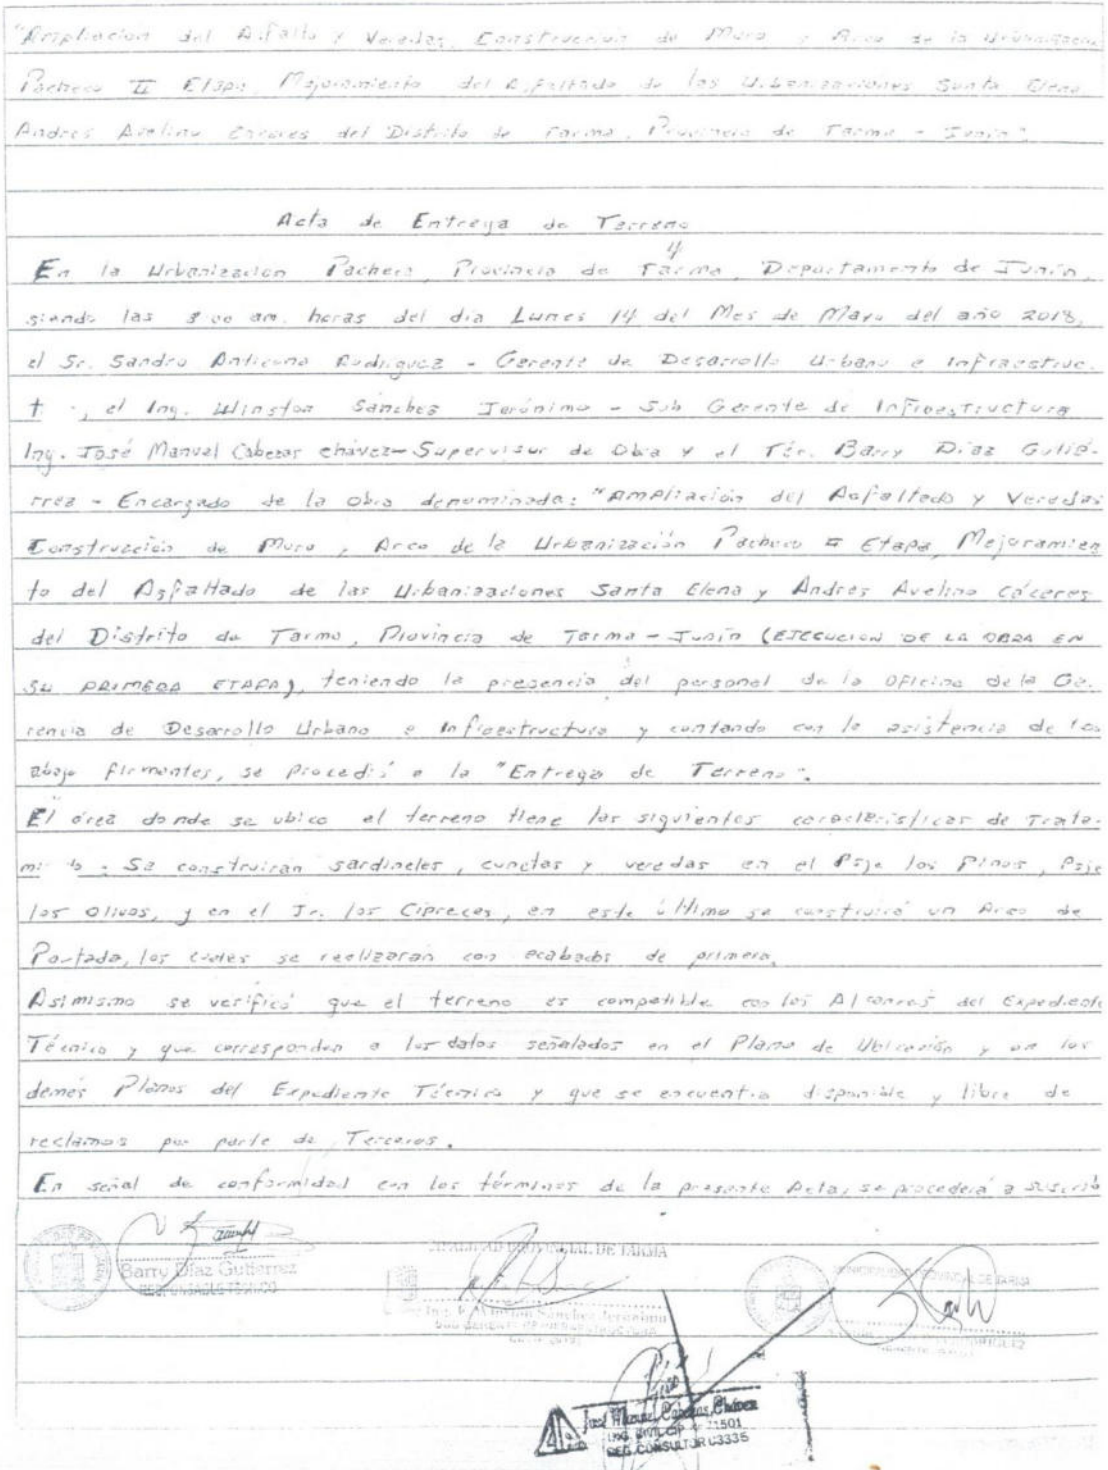 "Ampliación del Asfalto y Veredas, Construcción de Muro y Arco de la Urbanización
Pacheco II Etapa, Mejoramiento del Asfaltado de las Urbanizaciones Santa Elena
Andrés Avelino Cáceres del Distrito de Tarma, Provincia de Tarma - Junín".
Acta de Entrega de Terreno
En la Urbanización Pacheco, Provincia de Tarma, Departamento de Junín,
siendo las 8:00 am. horas del día Lunes 14 del Mes de Mayo del año 2018,
el Sr. Sandro Anticona Rodriguez - Gerente de Desarrollo Urbano e Infraestruc.
t, el Ing. Winston Sánchez Jerónimo - Sub Gerente de Infraestructura
Ing. José Manuel Cabezas chávez - Supervisor de Obra y el Téc. Barry Díaz Gutié-
rrez - Encargado de la Obra denominada: "Ampliación del Asfaltado y Veredas
Construcción de Muro, Arco de la Urbanización Pacheco II Etapa, Mejoramien
to del Asfaltado de las Urbanizaciones Santa Elena y Andrés Avelino Cáceres
del Distrito de Tarma, Provincia de Tarma - Junín (EJECUCION DE LA OBRA EN
SU PRIMERA ETAPA), teniendo la presencia del personal de la oficina de la Ge.
rencia de Desarrollo Urbano e Infraestructura y contando con la asistencia de los
abajo firmantes, se procedió a la "Entrega de Terreno".
El área donde se ubico el terreno tiene las siguientes características de Trata-
Se construiran sardineles, cunetas y veredas en el Psje los Pinos, Psje
los Olivos, y en el Jr. los Cipreces, en este último se construirá un Arco de
Portada, los cuales se realizarán con acabados de primera.
Asimismo se verificó que el terreno es compatible con los Alcances del Expediente
Técnico y que corresponden a los datos señalados en el Plano de Ubicación y en los
demás Planos del Expediente Técnico y que se encuentra disponible y libre de
reclamos por parte de Terceros.
En señal de conformidad con los términos de la presente Acta, se procederá a suscribi
Barry Díaz Gutierrez
RESPONSABLE TÉCNICO
CIPALIDAD PROVINCIAL DE TARMA
Sánchez Jeronimo
SUB GERENTE DE INFRAESTRUCTURA
MUNICIPALIDAD PROVINCIAL DE TARMA
RODRIGUEZ
José Manuel Cabezas Chávez
ING. CIVIL CIP Nº 71501
REG. CONSULTOR C3335